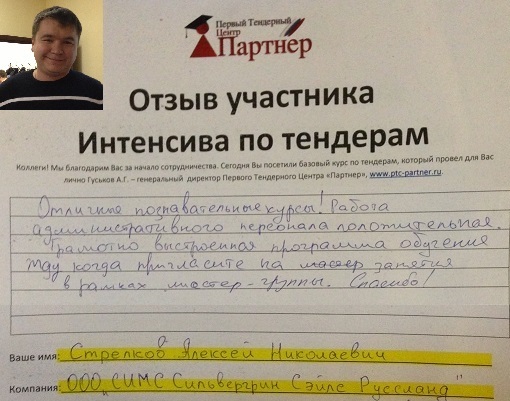 Первый Тендерный
Центр
Партнер
Отзыв участника
Интенсива по тендерам
Коллеги! Мы благодарим Вас за начало сотрудничества. Сегодня Вы посетили базовый курс по тендерам, который провел для Вас
лично Гуськов А.Г. – генеральный директор Первого Тендерного Центра «Партнер», www.ptc-partner.ru.
Отличные познавательные курсы! Работа
административного персонала положительная.
Грамотно выстроенная программа обучения
Жду когда пригласите на мастер занятия
в рамках мастер-группы. Спасибо!
Ваше имя: Стрелков Алексей Николаевич
Компания: ООО „СИМС Сильвергрин Сэйлс Руссланд"